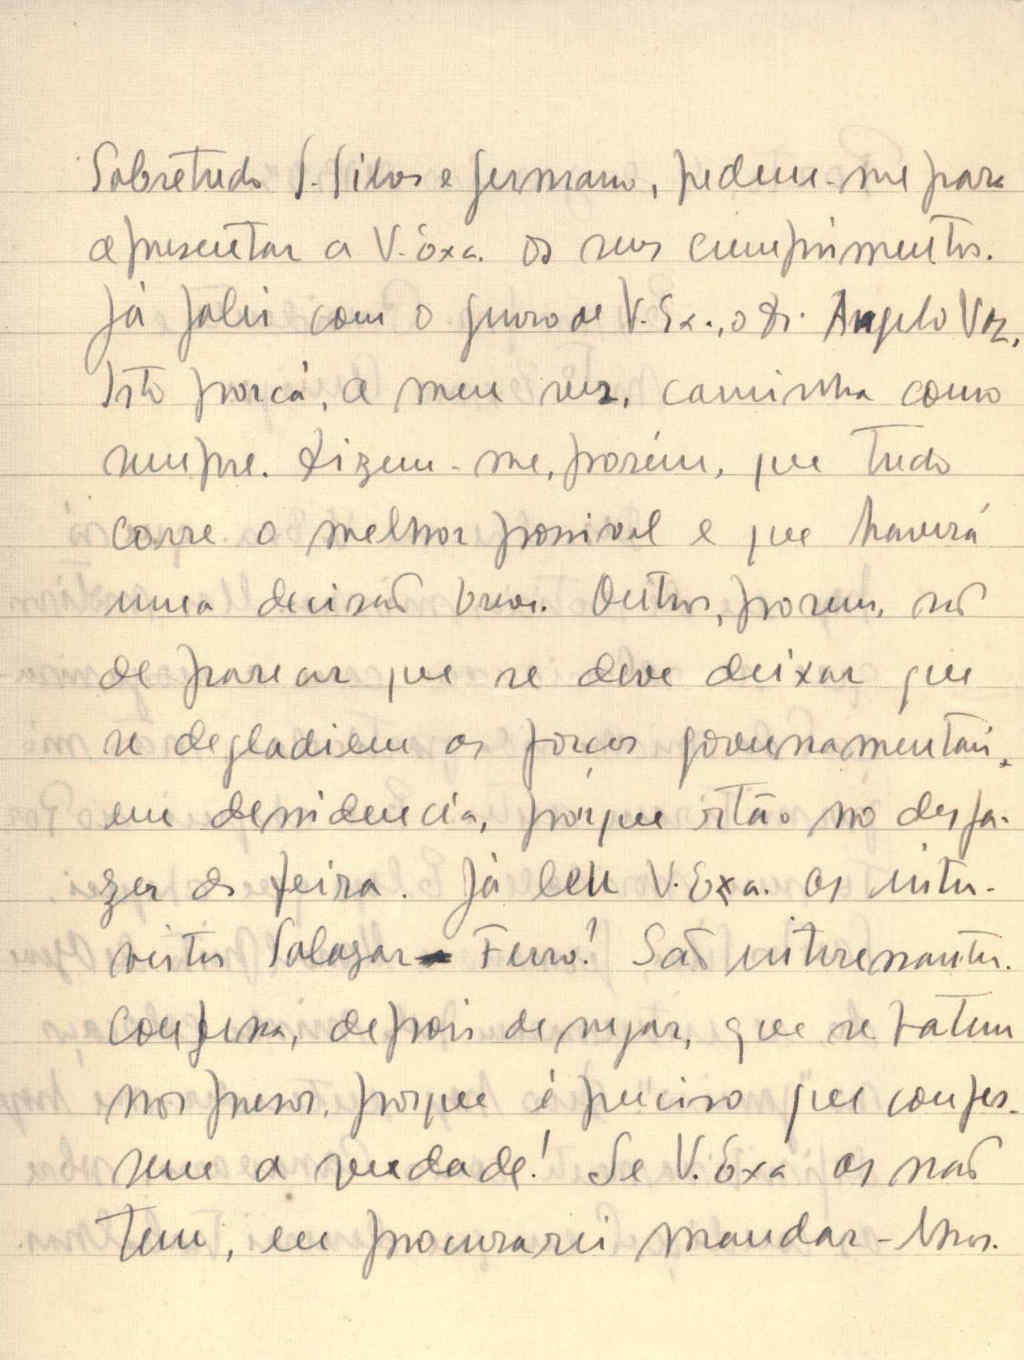 Sobretudo S. Silva e Germano, pedem-me para
apresentar a V. Exa. os seus cumprimentos.
Já falei com o genro de V. Ex., o Dr. Angelo Vaz,
Isto por cá, a meu ver, caminha como
sempre. Dizem-me, porém, que tudo
corre o melhor possivel e que haverá
uma decisão breve. Outros, porem, são
de parecer que se deve deixar que
se degladiem as forças governamentais,
em dissidencia, porque estão no desfa-
zer da feira. Já leu V. Exa. as inter-
vistas Salazar - Ferro? São interessantes.
Confessa, depois de negar, que se batem
nos presos, porque é preciso que confes-
sem a verdade! Se V. Exa as não
tem, eu procurarei mandar-lhas.